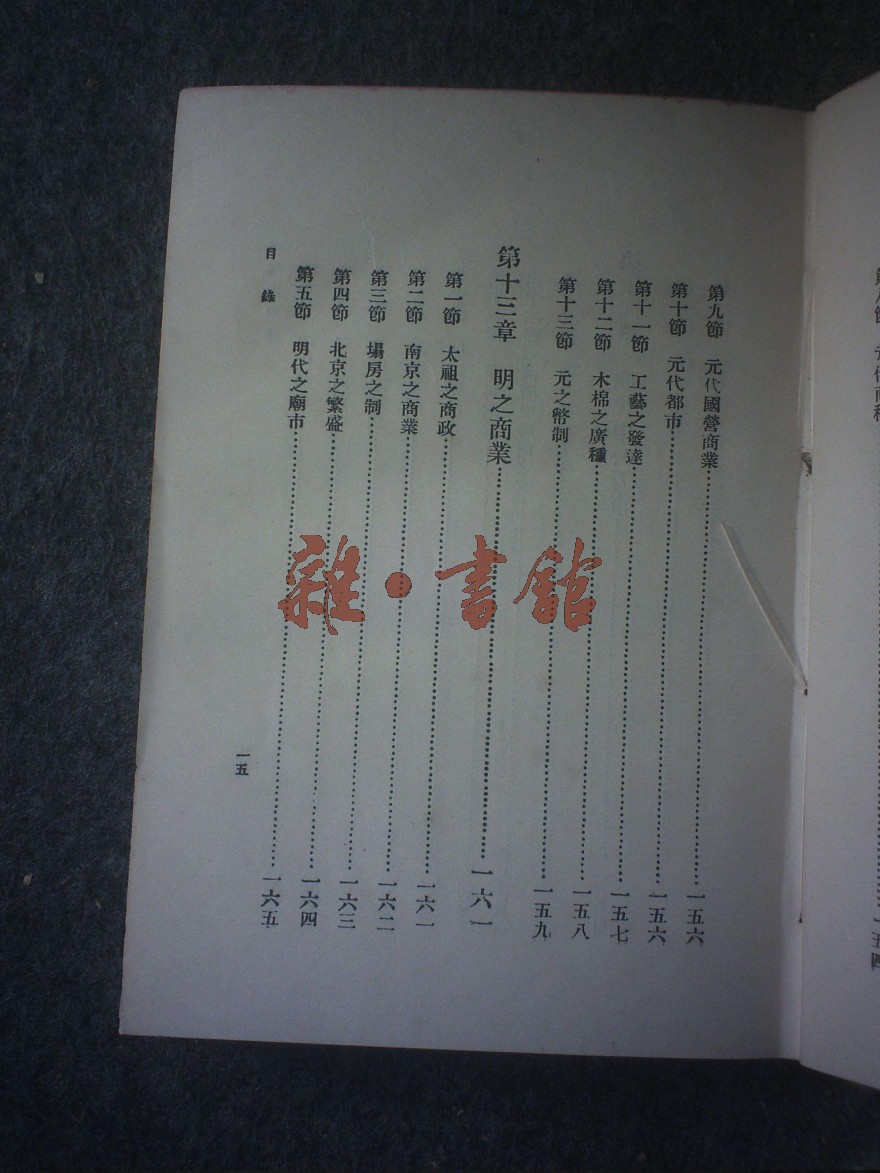 第九節　元代國營商業………一五六
第十節　元代都市………一五六
第十一節　工藝之發達………一五七
第十二節　木棉之廣種………一五八
第十三節　元之幣制………一五九
第十三章　明之商業………一六一
第一節　太祖之商政………一六一
第二節　南京之商業………一六二
第三節　塌房之制………一六三
第四節　北京之繁盛………一六四
第五節　明代之廟市………一六五
目錄
一五
雜·書館